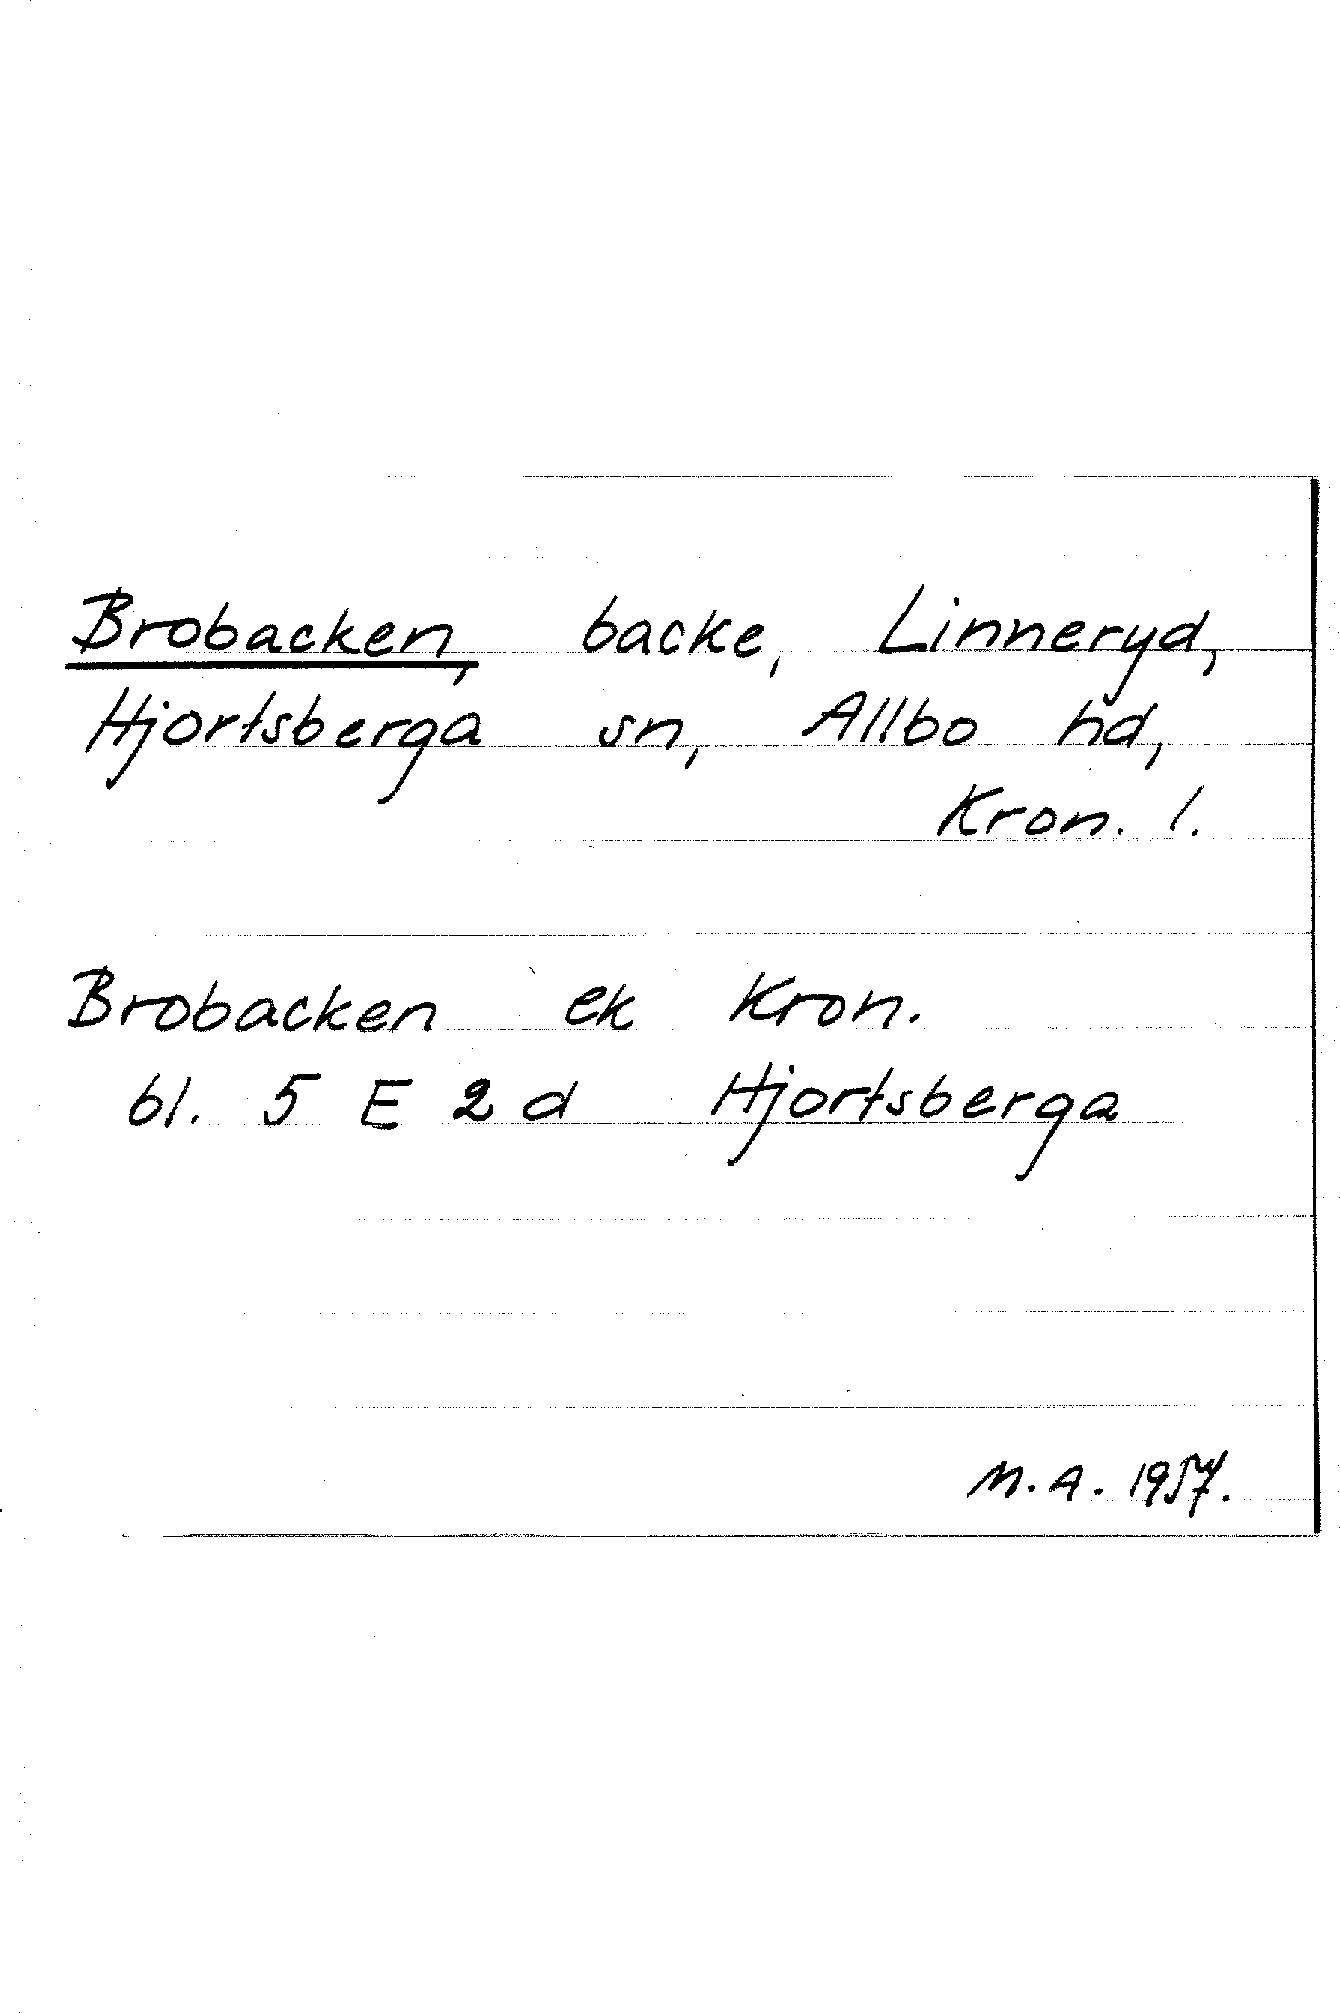 Brobacken, backe, Linneryd,
Hjortsberga sn, Allbo hd,
Kron. l.
Brobacken ek Kron.
bl. 5 E 2 d Hjortsberga
M. A. 1957.